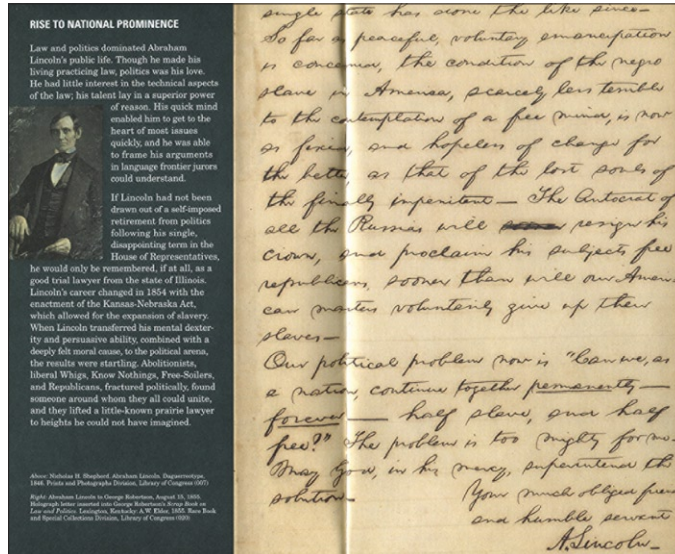 RISE TO NATIONAL PROMINENCE
Law and politics dominated Abraham
Lincoln's public life. Though he made his
living practicing law, politics was his love.
He had little interest in the technical aspects
of the law; his talent lay in a superior power
of reason. His quick mind
enabled him to get to the
heart of most issues
quickly, and he was able
to frame his arguments
in language frontier jurors
could understand.
If Lincoln had not been
drawn out of a self-imposed
retirement from politics
following his single,
disappointing term in the
House of Representatives,
he would only be remembered, if at all, as a
good trial lawyer from the state of Illinois.
Lincoln's career changed in 1854 with the
enactment of the Kansas-Nebraska Act,
which allowed for the expansion of slavery.
When Lincoln transferred his mental dexter-
ity and persuasive ability, combined with a
deeply felt moral cause, to the political arena,
the results were startling. Abolitionists,
liberal Whigs, Know Nothings, Free-Soilers,
and Republicans, fractured politically, found
someone around whom they all could unite,
and they lifted a little-known prairie lawyer
to heights he could not have imagined.
Above: Nicholas H. Shepherd. Abraham Lincoln. Daguerreotype,
1846. Prints and Photographs Division, Library of Congress (007)
Right: Abraham Lincoln to George Robertson, August 15, 1855.
Holograph letter inserted into George Robertson's Scrap Book on
Law and Politics. Lexington, Kentucky: A.W. Elder, 1855. Rare Book
and Special Collections Division, Library of Congress (020)
single state has done the like since—
So far as peaceful, voluntary emancipation
is concerned, the condition of the negro
slave in America, scarcely less terrible
to the contemplation of a free mind, is now
as fixed, and hopeless of change for
the better, as that of the lost souls of
the finally impenitent— The Autocrat of
all the Russias will resign his
crown, and proclaim his subjects free
republicans, sooner than will our Ameri-
can masters voluntarily give up their
slaves—
Our political problem now is "Can we, as
a nation, continue together permanently—
forever— half slave, and half
free?" The problem is too mighty for me.
May God, in his mercy, superintend the
solution—
Your much obliged friend
and humble servant
A. Lincoln—